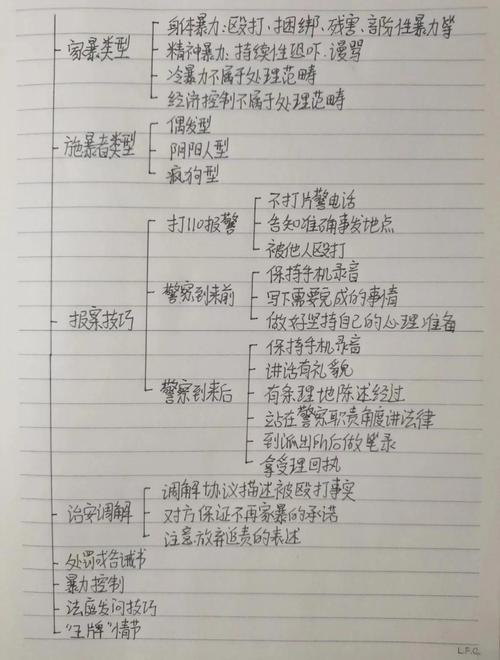 家暴类型
身体暴力:殴打、捆绑、残害、部份性暴力等
精神暴力:持续性恐吓、谩骂
冷暴力不属于处理范畴
经济控制不属于处理范畴
施暴者类型
偶发型
阴阳人型
疯狗型
报案技巧
打110报警
不打片警电话
告知准确事发地点
被他人殴打
警察到来前
保持手机录音
写下需要完成的事情
做好坚持自己的心理准备
警察到来后
保持手机录音
讲话有礼貌
有条理地陈述经过
站在警察职责角度讲法律
到派出所后做笔录
拿受理回执
治安调解
调解协议描述被殴打事实
对方保证不再家暴的承诺
注意放弃追责的表述
处罚或告诫书
暴力控制
法庭发问技巧
"王牌"情节
L.F.G.